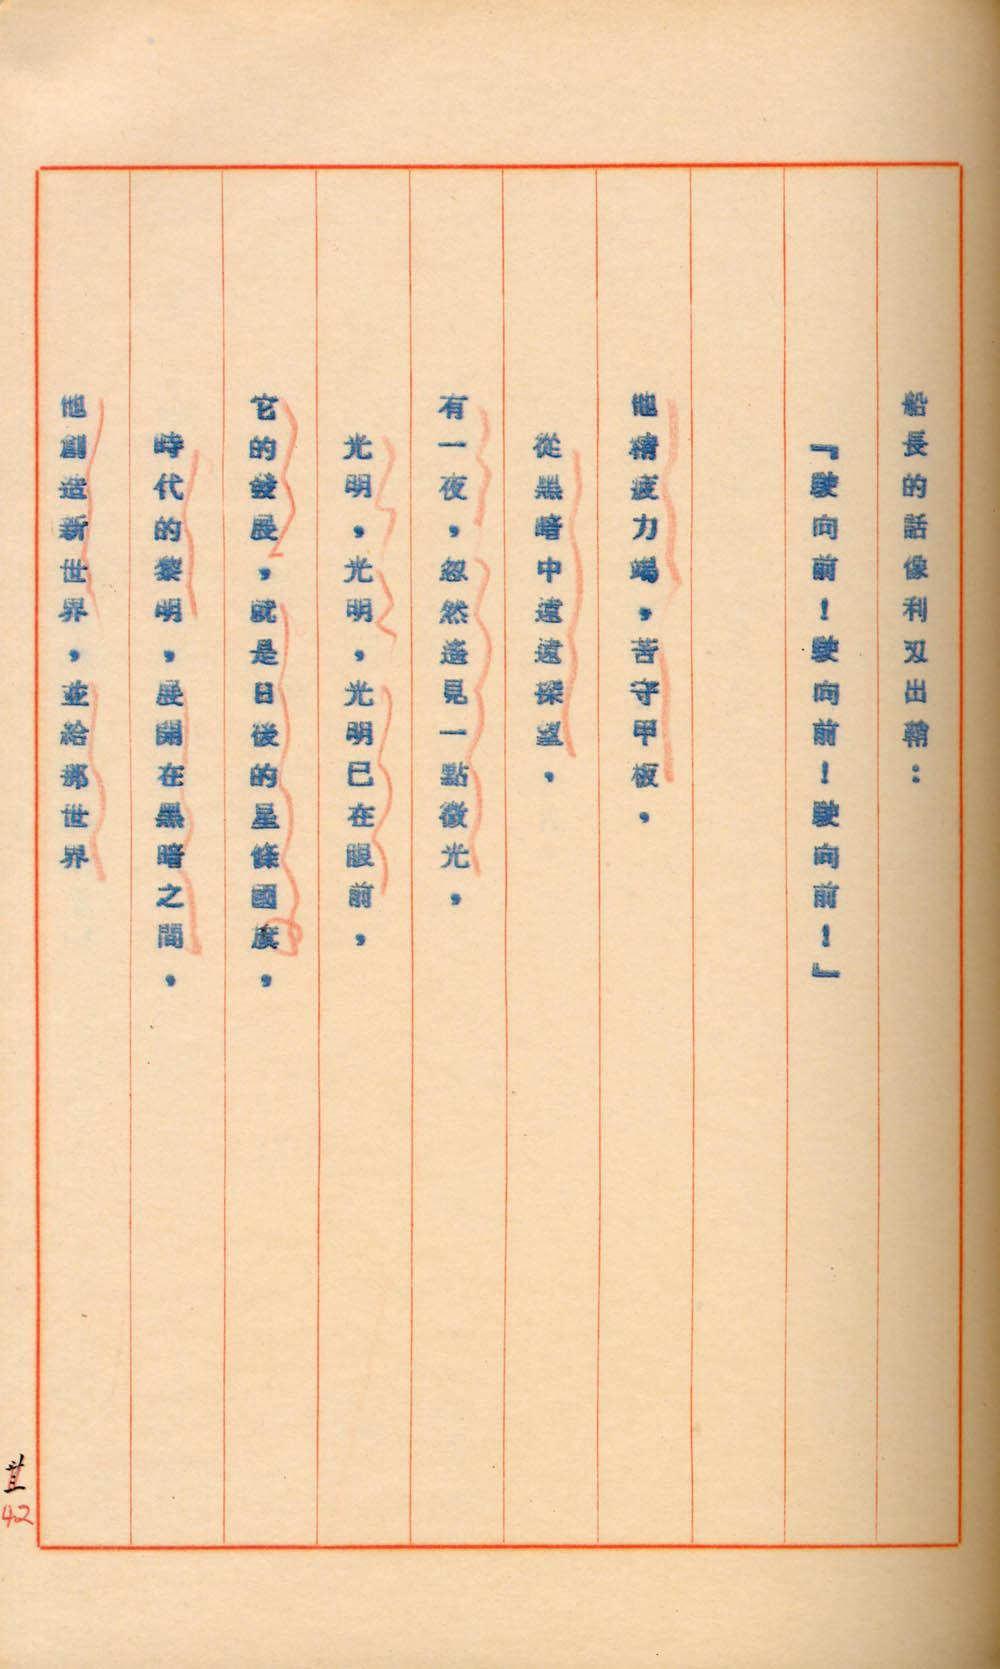 船長的話像利刃出鞘：
『駛向前！駛向前！駛向前！』
他精疲力竭，苦守甲板，
從黑暗中遠遠探望，
有一夜，忽然遙見一點微光，
光明，光明，光明已在眼前，
它的發展，就是日後的星條國旗，
時代的黎明，展開在黑暗之間，
他創造新世界，並給那世界
42